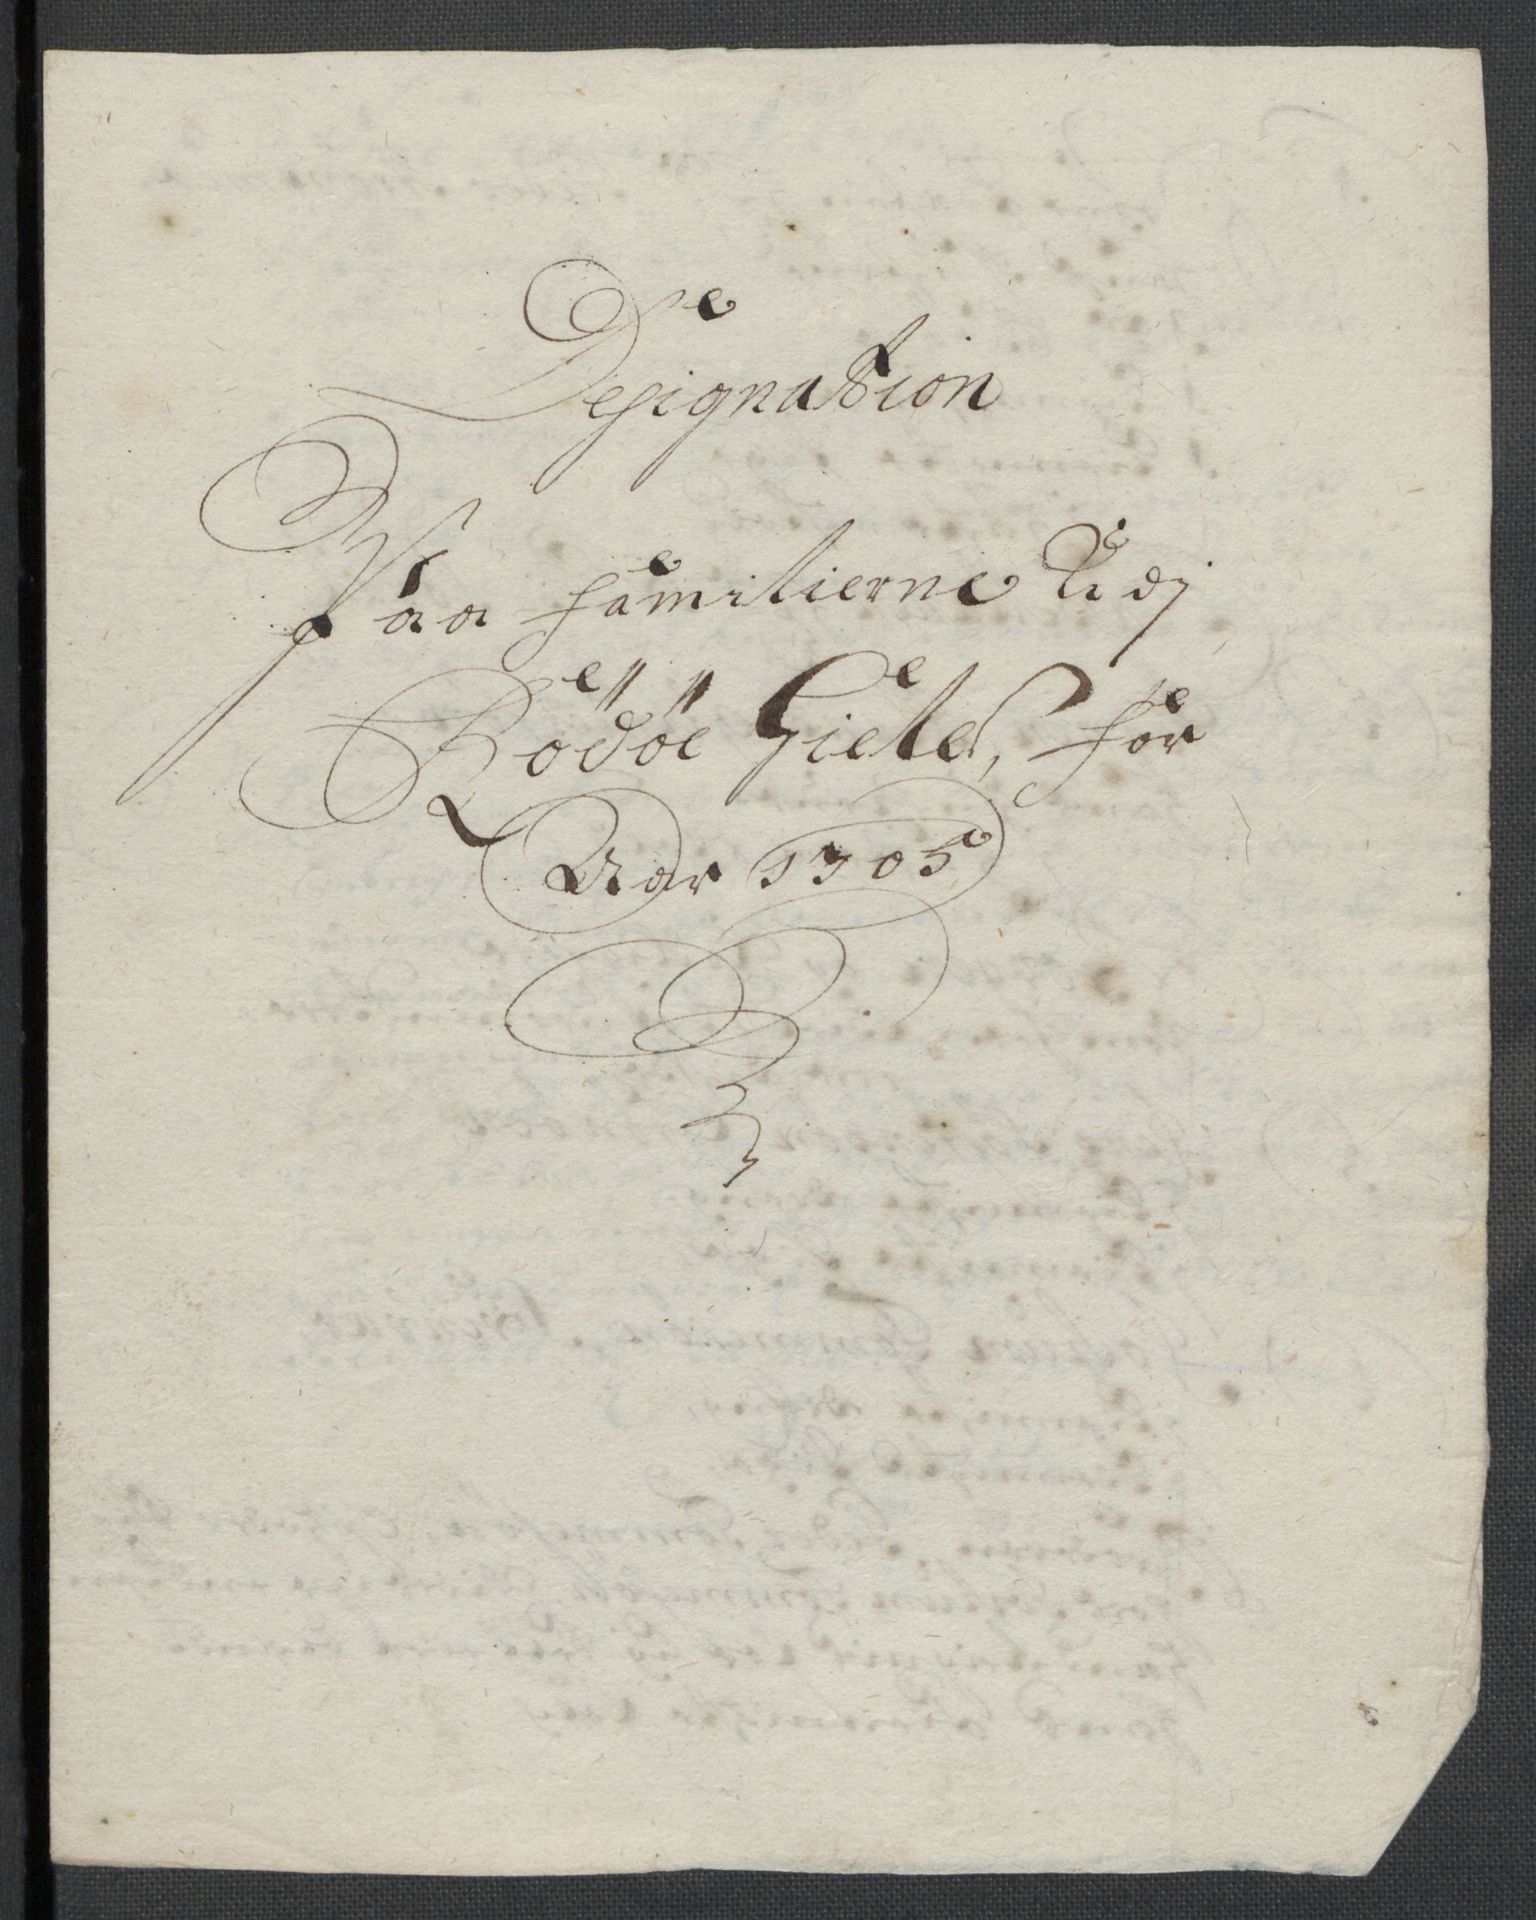 Designation
Paa familierne Udj
Rödöe Gield, for
Aar 1705